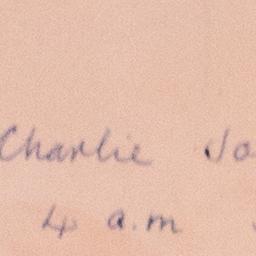 Charlie Jo
4 a.m